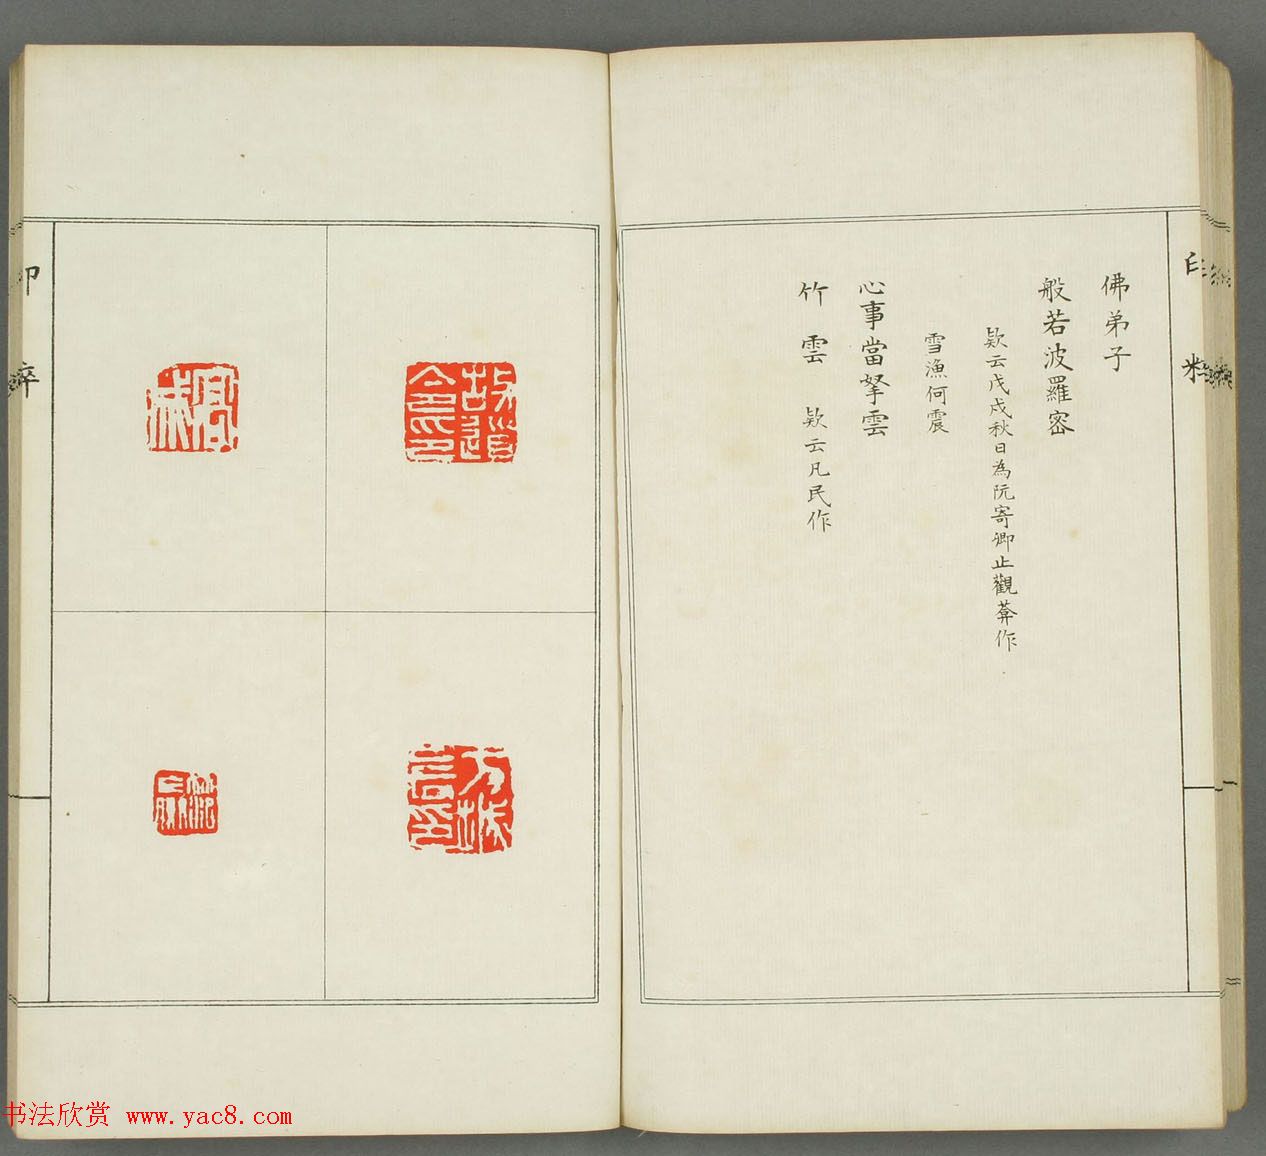 佛弟子
般若波羅密
欵云戊戌秋日為阮寄卿止觀葊作
雪漁何震
心事當拏雲
竹雲 欵云凡民作
印
书法欣赏 www.yac8.com